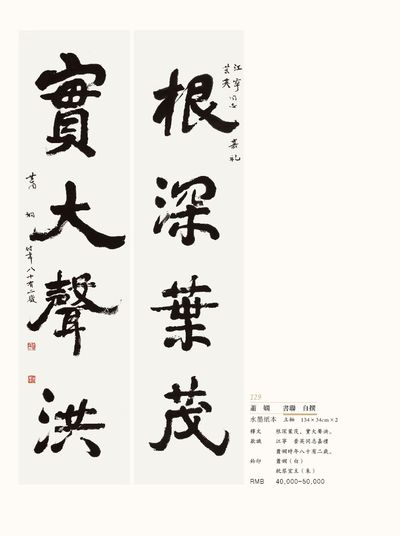 根深葉茂
江寧同志
芸英
嘉礼
實大聲洪
蕭嫻
時年八十有二歲
129
蕭嫻 書聯 自撰
水墨紙本 立軸 134×34cm×2
釋文 根深葉茂、實大聲洪。
款識 江寧 芸英同志嘉禮
蕭嫻時年八十有二歲。
鈐印 蕭嫻（白）
枕琴室主（朱）
RMB 40,000-50,000